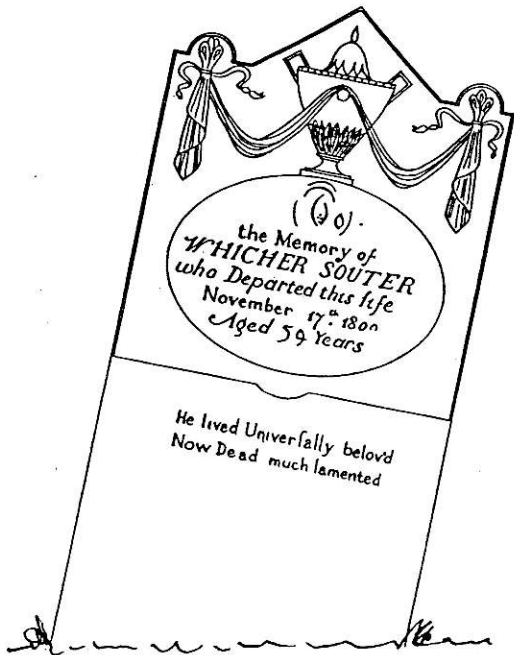 the Memory of
WHICHER SOUTER
who Departed this life
November 17.th 1800
Aged 59 Years
He lived Univerſally belov'd
Now Dead much lamented